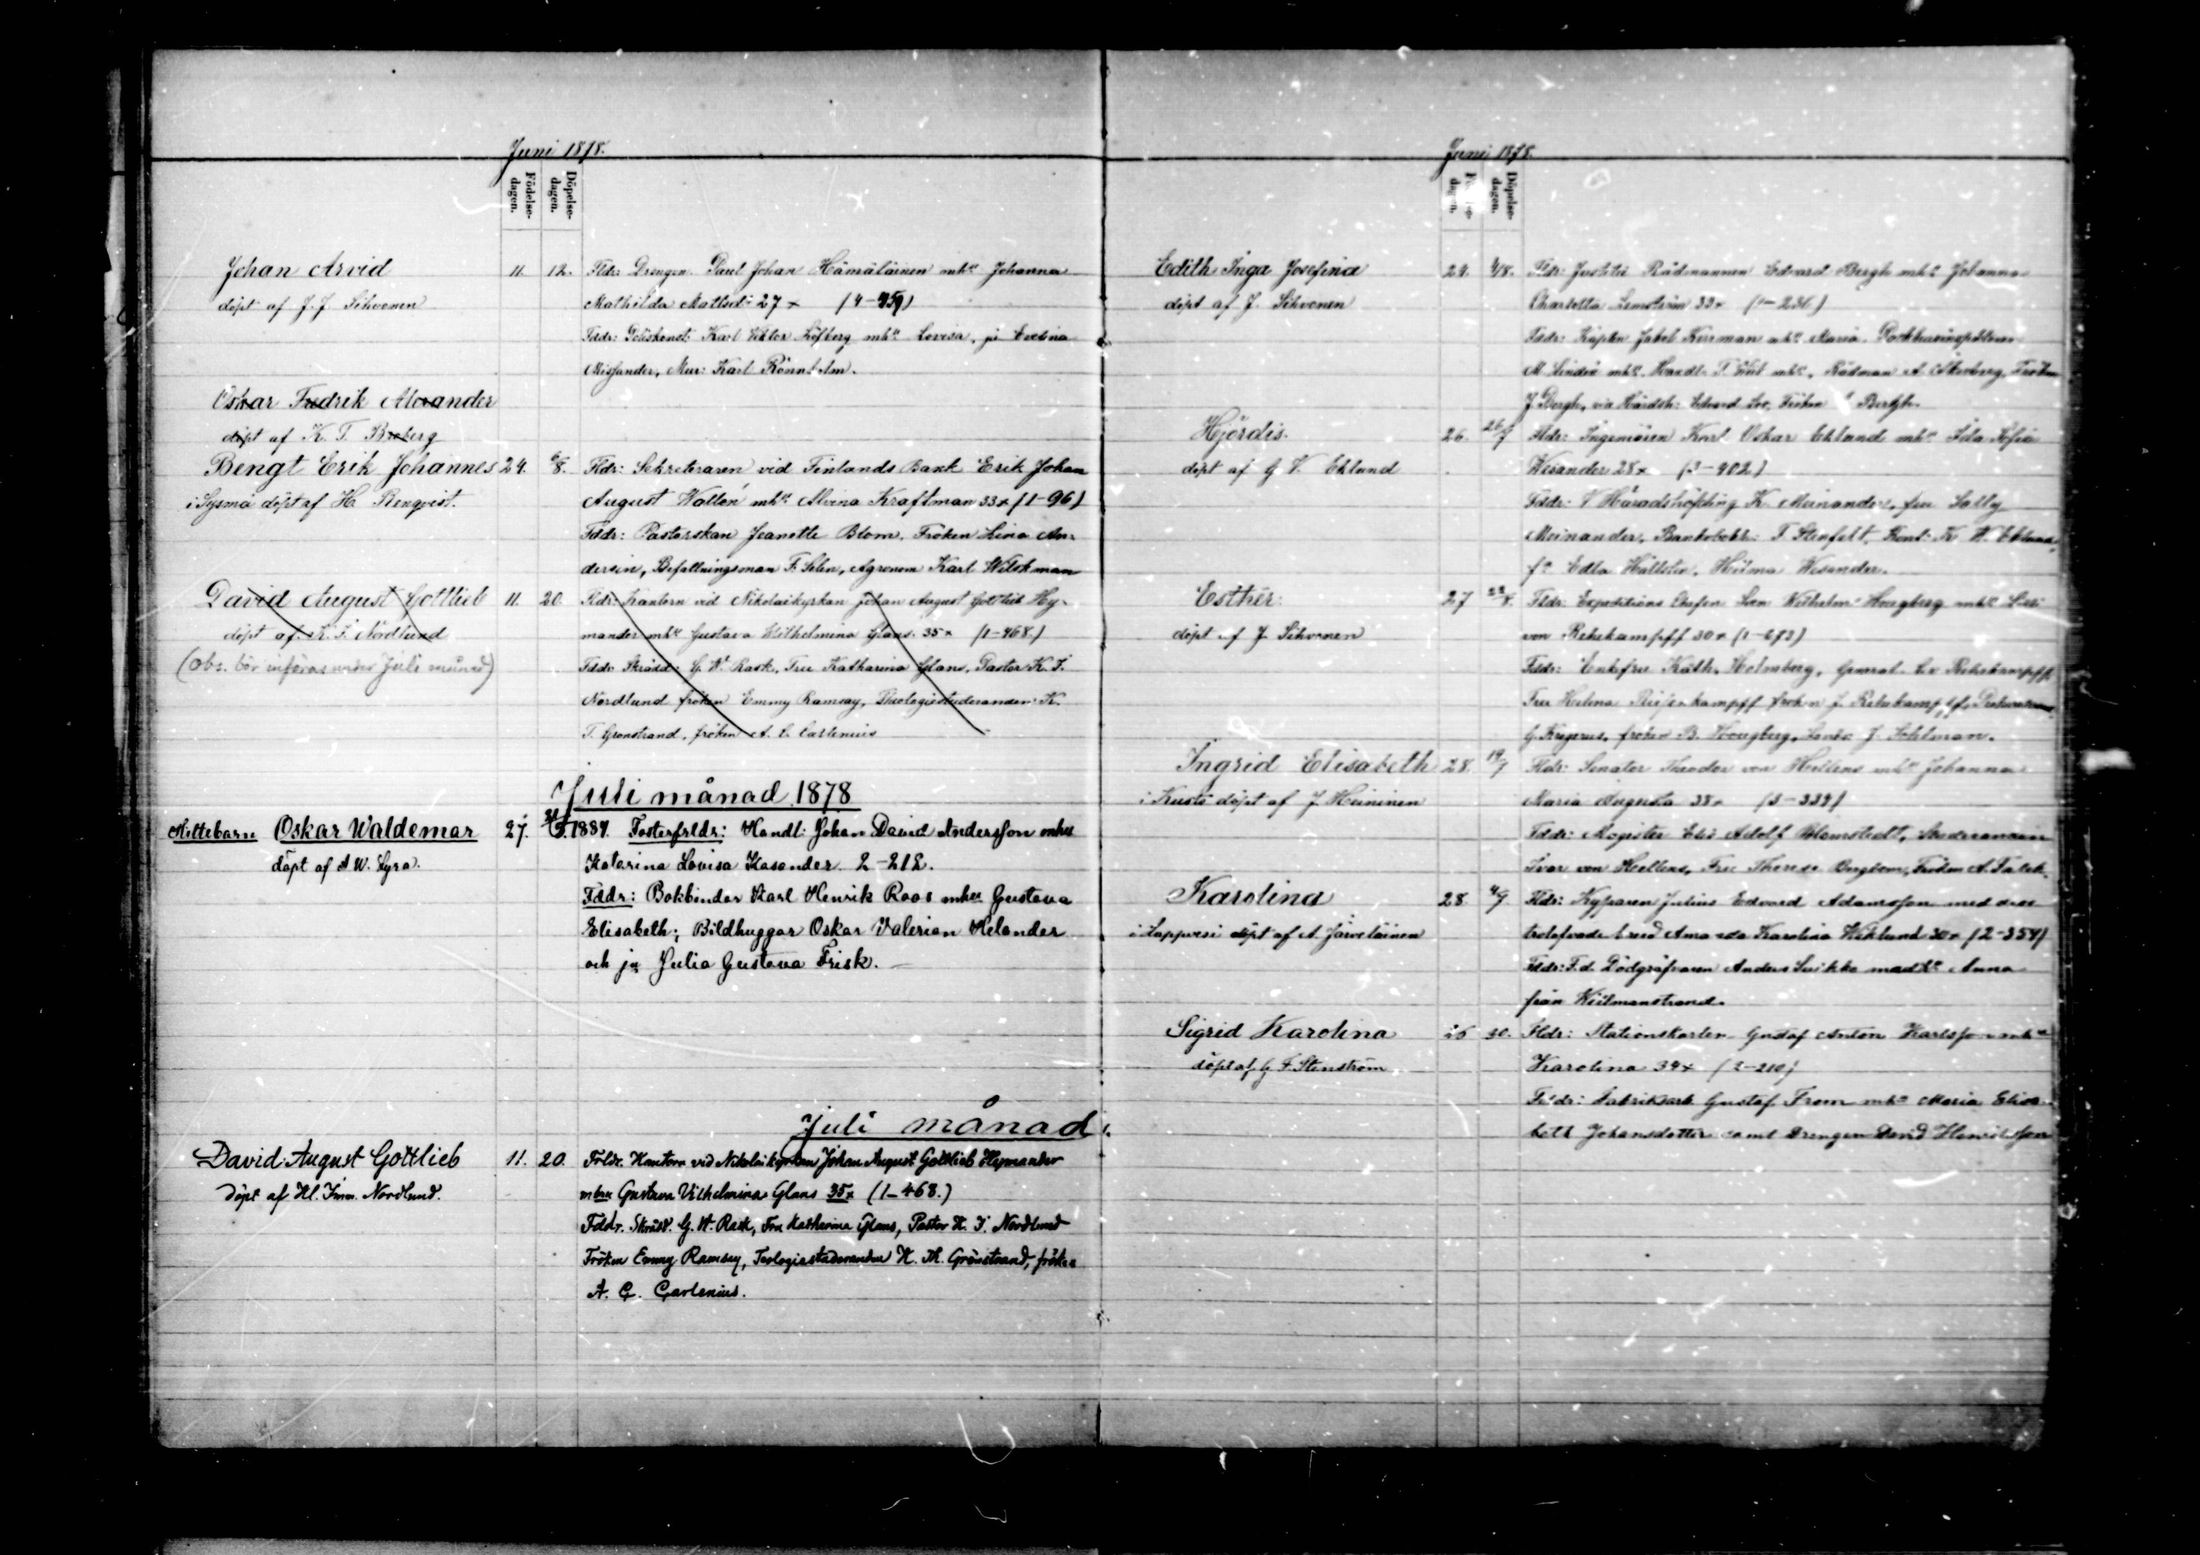 Juni 1878.
Födelse-
dagen.
Döpelse-
dagen.
Johan Arvid 11. 12. Fldr: Drengen Paul Johan Hämäläinen mh: Johanna
döpt af J. J. Sihvonen Mathilda Mattsd: 27 x (4-459)
Fddr: Karl Viktor Löfberg mh: Lovisa, pi Evelina
Missander, Mur: Karl Rönnholm.
Oskar Fredrik Alexander
döpt af K. T. Broberg
Bengt Erik Johannes 24. 6/8. Fldr: Sekreteraren vid Finlands Bank Erik Johan
i Sysmä döpt af H. Renqvist. August Wallén mh: Alvina Kraftman 33x (1-96)
Fddr: Pastorskan Jeanette Blom, Fröken Lina An-
dersin, Befallningsman F. Selen, Agronom Karl Wilskman
David August Gottlieb 11. 20. Fldr: Kantorn vid Nikolaikyrkan Johan August Gottlieb Hy-
döpt af K. I. Nordlund mander mh: Gustava Wilhelmina Glans 35x (1-468)
(Obs. bör införas under Juli månad) Fddr: Skrädd: G. W. Rask, Fru Katharina Glans, Pastor K. I.
Nordlund fröken Emmy Ramsay, Theologiestuderanden K.
T. Grönstrand, fröken A. C. Carlenius
Juli månad 1878
Hittebarn Oskar Waldemar 27. 1887. Fosterfrldr: Handl: Johan David Andersson mhu
döpt af A W. Lyra. Katarina Lovisa Kasander 2-218.
Fddr: Bokbindar Karl Henrik Roos mhu Gustava
Elisabeth; Bildhuggar Oskar Valerian Helander
och jn Julia Gustava Frisk.
Juli månad
David August Gottlieb 11. 20. Frldr. Kantorn vid Nikolaikyrkan Johan August Gottlieb Hymander
döpt af Kl. Imm. Nordlund. mhu Gustava Vilhelmina Glans 35x (1-468.)
Fddr. Skrädd. G. W. Rask, Fru Katharina Glans, Pastor K. I. Nordlund
Fröken Emmy Ramsay, Teologiestuderanden K. Th. Grönstrand, fröken
A. C. Carlenius.
Juni 1878.
dagen.
Döpelse-
dagen.
Edith Inga Josefina 24. 4/8. Fldr: Justitie Rådmannen Edvard Bergh mh: Johanna
döpt af J. Sihvonen Charlotta Lemström 33x (1-236)
Fddr: Kapten Jakob Kurrman mh: Maria,
M. Lindro mh: Handl: F. mh:, Rådman A. Åkerberg, Fröken
J. Bergh, vice Häradsh: Edvard Fröken Bergh.
Hjördis. 26. 26/7 Fldr: Ingeniören Karl Oskar Eklund mh: Ida Sofia
döpt af G V. Eklund Wesander 28x (3-902)
Fddr: V Häradshöfding K. Meinander, fru Sally
Meinander, F. Stenfelt, K W. Eklund,
fr Edla Hällström, Hilma Wesander.
Esther 27 22/8. Fldr: Expeditions Chefen Sven Wilhelm Hougberg mh:
döpt af J. Sihvonen von Rehekampff 30x (1-273)
Fddr: Enkefru Kath. Holmberg, General. Rehekampff,
Fru Helena fröken J. Rehekampff,
G. Kregerus, fröken B. Hougberg, J. Sohlman.
Ingrid Elisabeth 28. 19/7 Fldr: Senator Theodor von Hellens mh: Johanna
döpt af J. Heininen Maria Augusta 38x (3-339)
Fddr: Magister Elis Adolf Blomstedt, Studeranden
Ivar von Hellens, Fru Therese Bergbom, Fröken A. Falck.
Karolina 28. 4/9 Fldr: Kyparen Julius Edvard Adamsson med dess
i Lappvesi döpt af A. Järveläinen trolofvade brud Amanda Karolina Wiklund 30x (2-354)
Fddr: F.d. Dödgräfvaren Anders Suikka med h: Anna
från Willmanstrand.
Sigrid Karolina 26 30. Fldr: Stationskarlen Gustaf Anton Karlsson mh:
döpt af G F. Stenström Karolina 34x (2-210)
Fddr: Fabriksarb Gustaf From mh: Maria Elisa-
beth Johansdotter samt Drengen David Henriksson